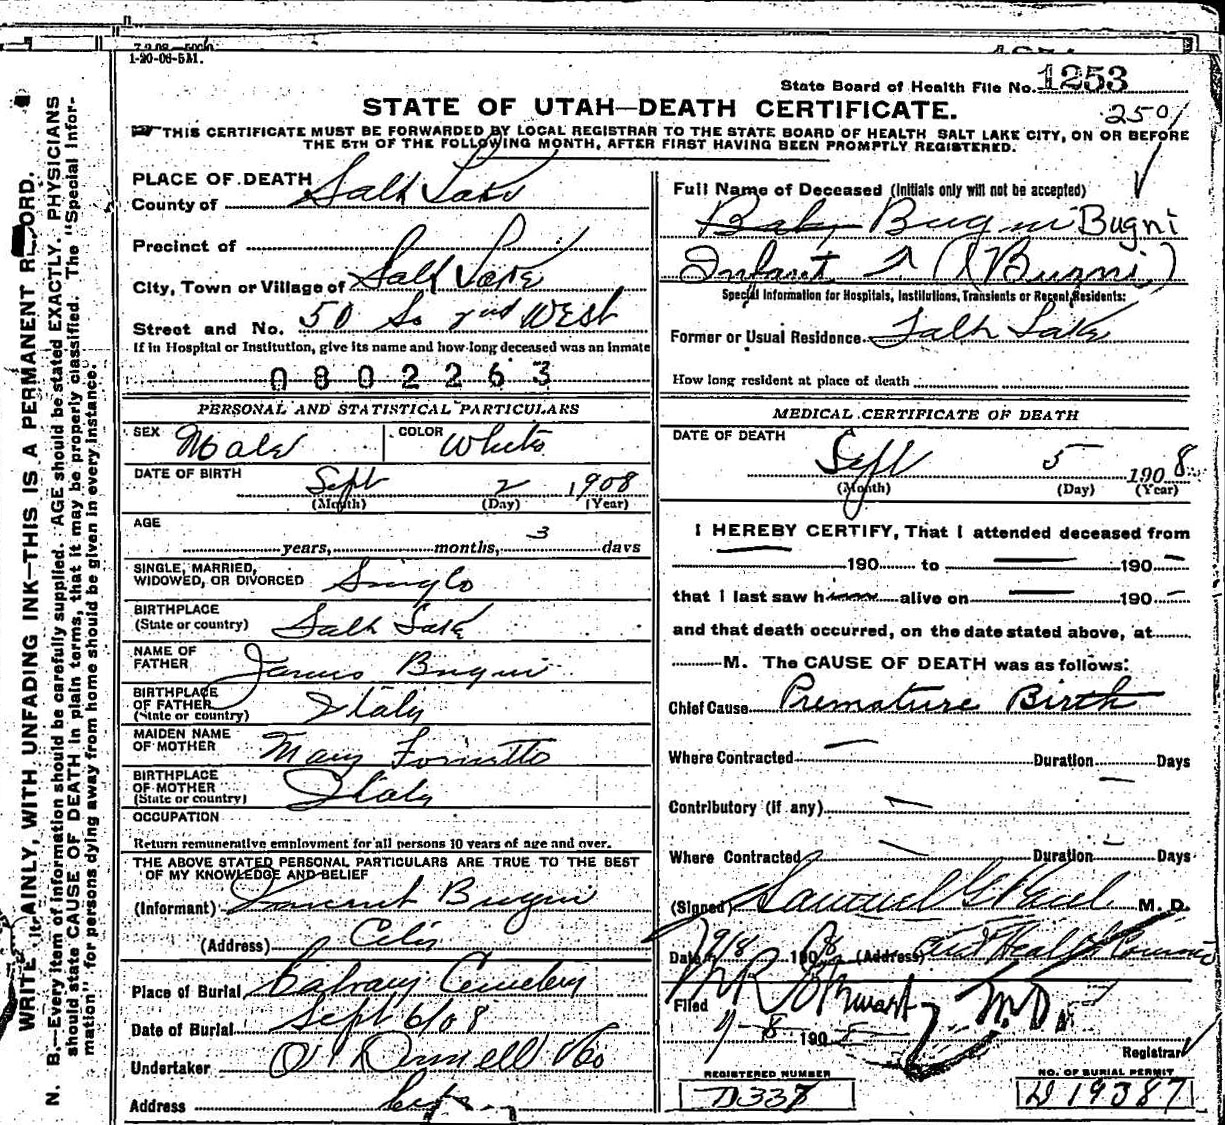 1-20-08-5M.
State Board of Health File No. 1253
STATE OF UTAH—DEATH CERTIFICATE.
2501
THIS CERTIFICATE MUST BE FORWARDED BY LOCAL REGISTRAR TO THE STATE BOARD OF HEALTH SALT LAKE CITY, ON OR BEFORE
THE 5TH OF THE FOLLOWING MONTH, AFTER FIRST HAVING BEEN PROMPTLY REGISTERED.
WRITE PLAINLY, WITH UNFADING INK—THIS IS A PERMANENT RECORD.
N. B.—Every item of information should be carefully supplied. AGE should be stated EXACTLY. PHYSICIANS
should state CAUSE OF DEATH in plain terms, that it may be properly classified. The "Special Infor-
mation" for persons dying away from home should be given in every instance.
PLACE OF DEATH
County of Salt Lake
Precinct of
City, Town or Village of Salt Lake
Street and No. 50 So 2nd West
If in Hospital or Institution, give its name and how long deceased was an inmate
0802263
PERSONAL AND STATISTICAL PARTICULARS
SEX Male COLOR White
DATE OF BIRTH Sept 2 1908
(Month) (Day) (Year)
AGE years, months, 3 days
SINGLE, MARRIED,
WIDOWED, OR DIVORCED Single
BIRTHPLACE
(State or country) Salt Lake
NAME OF
FATHER James Bugni
BIRTHPLACE
OF FATHER
(State or country) Italy
MAIDEN NAME
OF MOTHER Mary
BIRTHPLACE
OF MOTHER
(State or country) Italy
OCCUPATION
Return remunerative employment for all persons 10 years of age and over.
THE ABOVE STATED PERSONAL PARTICULARS ARE TRUE TO THE BEST
OF MY KNOWLEDGE AND BELIEF
(Informant) Vincent Bugni
(Address) City
Place of Burial Calvary Cemetery
Date of Burial Sept 6/08
Undertaker O'Donnell & Co
Address City
Full Name of Deceased (Initials only will not be accepted)
Baby Bugni Bugni
Infant (Bugni)
Special Information for Hospitals, Institutions, Transients or Recent Residents:
Former or Usual Residence Salt Lake
How long resident at place of death
MEDICAL CERTIFICATE OF DEATH
DATE OF DEATH
Sept 5 1908
(Month) (Day) (Year)
I HEREBY CERTIFY, That I attended deceased from
190 to 190
that I last saw him alive on 190
and that death occurred, on the date stated above, at
M. The CAUSE OF DEATH was as follows:
Chief Cause Premature Birth
Where Contracted Duration Days
Contributory (if any)
Where Contracted Duration Days
(Signed) Samuel G Paul M. D.
Date 9/8 1908 (Address) City Health Commis
Filed
9-8 1908
M.D.
Registrar
REGISTERED NUMBER
D337
NO. OF BURIAL PERMIT
D 19387